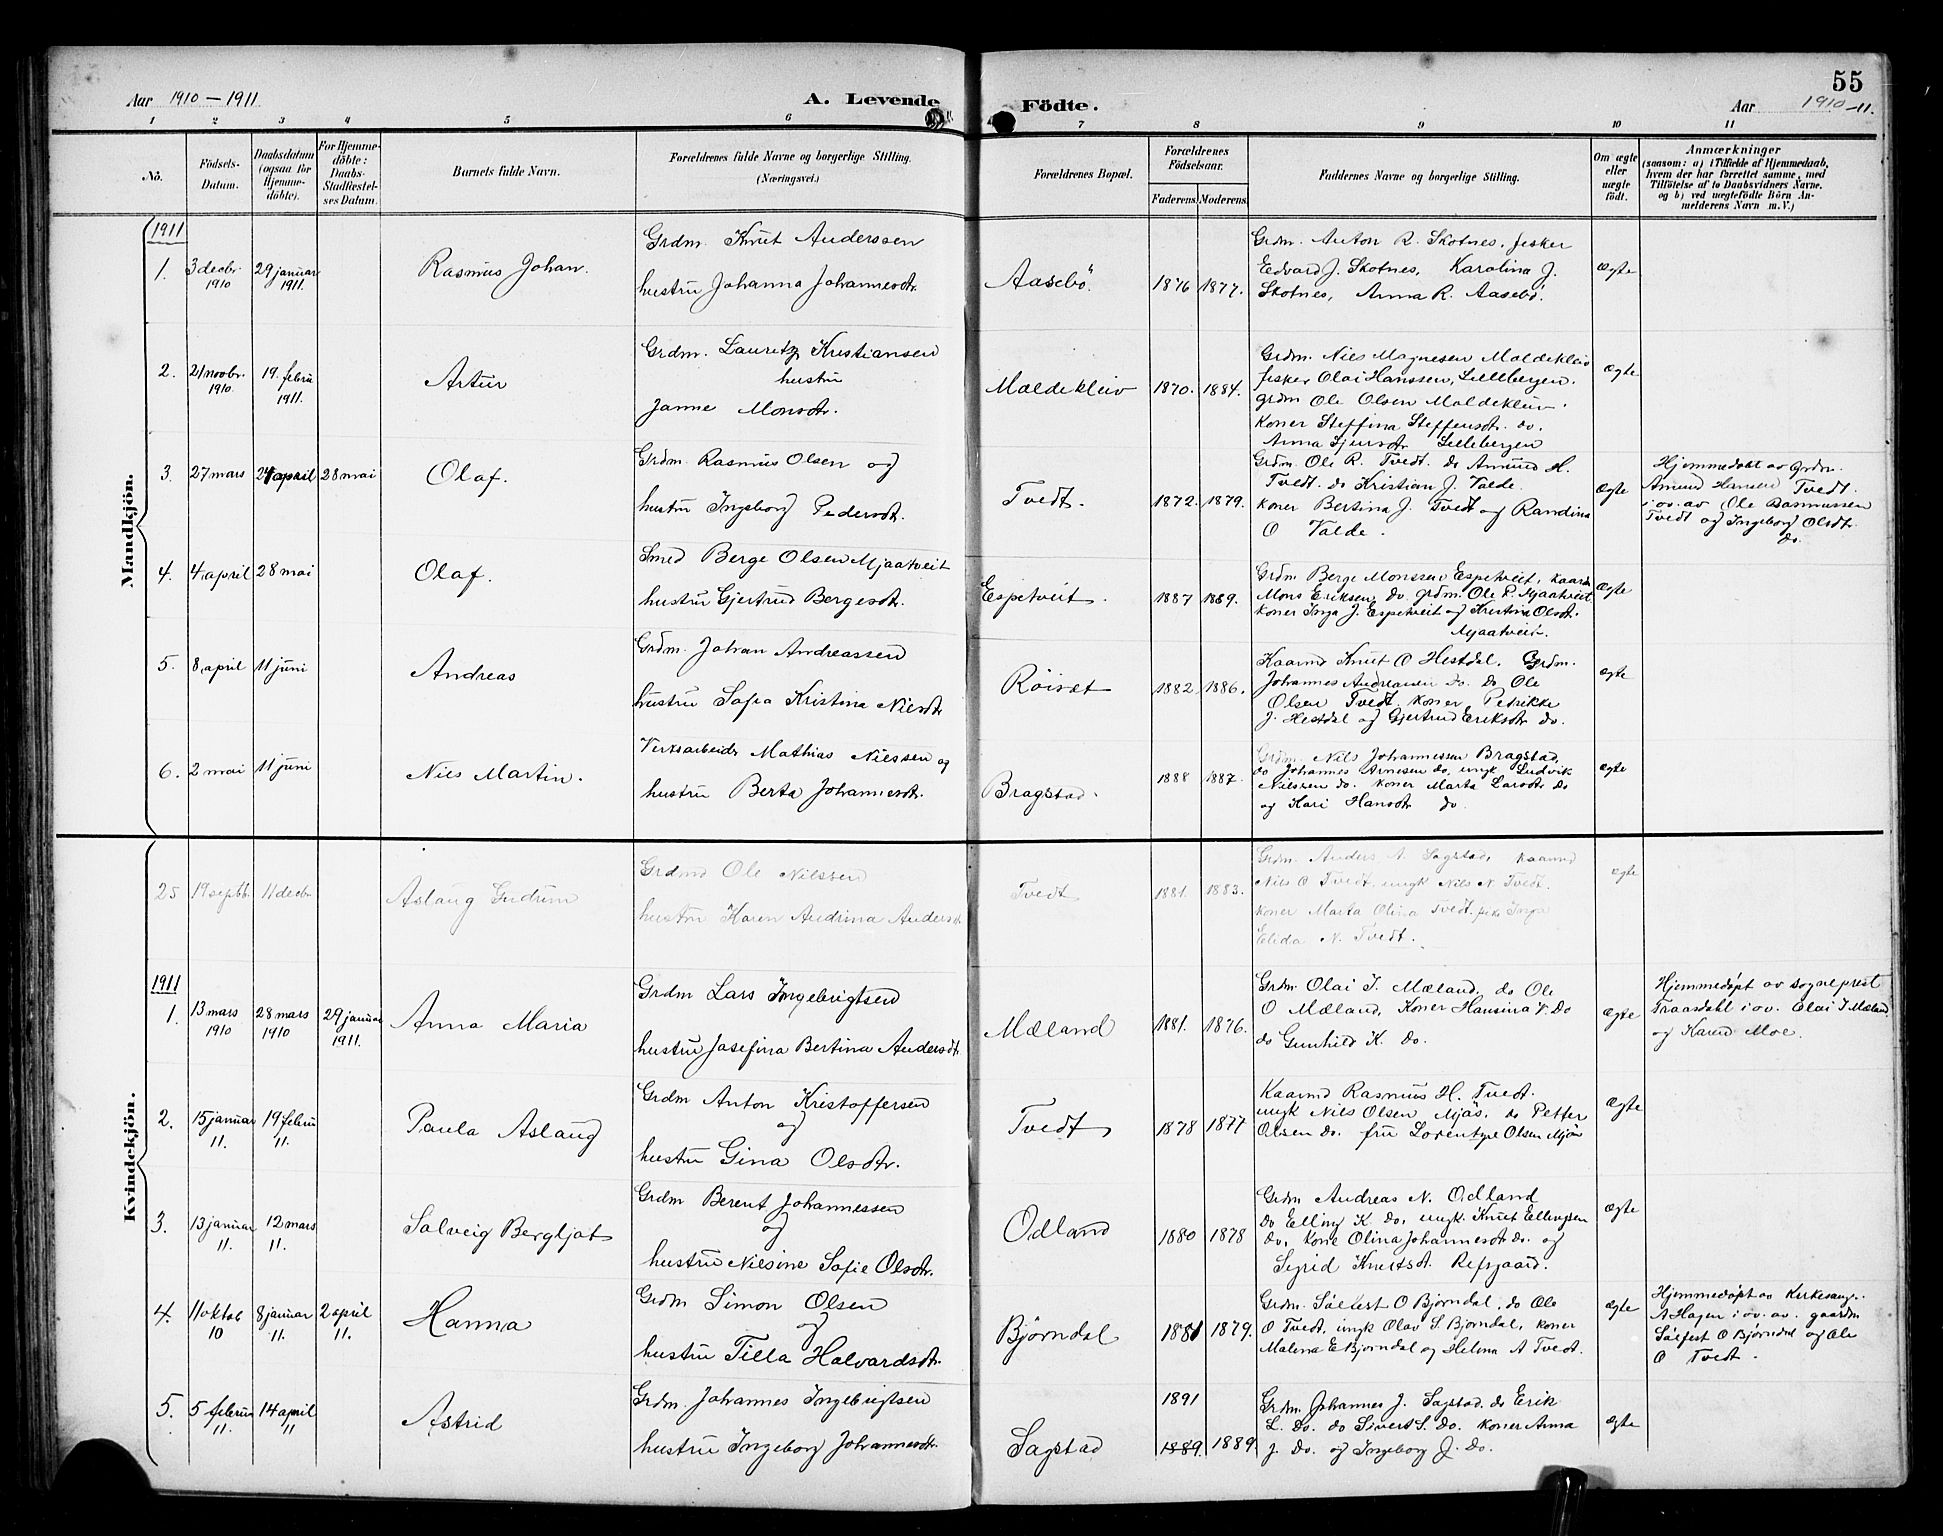 Aar 1910 – 1911
A. Levende Födte.
55
Aar 1910–11.
1 2 3 4 5 6 7 8 9 10 11
No.
Födsels-Datum.
Daabsdatum (ogsaa for Hjemme-döbte).
For Hjemme-döbte: Daabs-Stadfæstel-ses Datum.
Barnets fulde Navn.
Forældrenes fulde Navne og borgerlige Stilling.
(Næringsvei.)
Forældrenes Bopæl.
Forældrenes Födselsaar.
Faderens. Moderens.
Faddernes Navne og borgerlige Stilling.
Om ægte eller uægte födt.
Anmærkninger
(saasom: a) i Tilfælde af Hjemmedaab, hvem der har forrettet samme, med Tilföielse af to Daabsvidners Navne, og b) ved uægtefödte Börn An-melderens Navn m. V.)
Mandkjön.
1911
1. 3 decbr. 1910 29 januar 1911. Rasmus Johan.
Grdm. Knut Anderssen
hustru Johanna Johannesdtr.
Aasebö. 1876 1877.
Grdm. Anton R. Skotnes, fisker
Edvard J. Skotnes, Karolina J.
Skotnes, Anna R. Aasebö.
Ægte
2. 21 novbr. 1910 19. febru 1911. Artur
Grdm. Lauritz Kristiansen
hustru
Janne Monsdtr.
Maldekleiv 1870. 1884.
Grdm. Nils Magnesen Maldekleiv
fisker Olai Hanssen, Lillebergen.
grdm Ole Olsen Maldekleiv.
Koner Steffina Steffensdtr. do.
Anna Lillebergen
Ægte
3. 27 mars 24 april 28 mai Olaf.
Grdm. Rasmus Olsen og
hustru Ingeborg Pedersdtr.
Tvedt. 1872. 1879.
Grdm. Ole R. Tvedt. do Amund H.
Tvedt. do Kristian J. Valde.
Koner Bertina J. Tvedt og Randina
O Valde.
Ægte
Hjemmedøbt av grdm.
Amund Hansen Tvedt.
i ov. av Ole Rasmussen
Tvedt og Ingeborg Olsdtr.
do.
4. 4. april 28 mai Olaf.
Smed Berge Olsen Mjaatveit
hustru Gjertrud Bergesdtr.
Espetveit. 1887 1889.
Grdm Berge Monssen Espetveit, kaarm
Mons Eriksen do. grdm. Ole P. Mjaatveit
Koner Inga J. Espetveit og Kristina Olsdtr.
Mjaatveit.
Ægte
5. 8. april 11 juni Andreas
Grdm. Johan Andreassen
hustru Sofia Kristina Nilsdtr
Röiset 1882. 1886.
Kaarmd Knut O Hestdal. Grdm.
Johannes Andreasen do. do Ole
Olsen Tvedt. Koner Pedrikke
J. Hestdal og Gjertrud Eriksdtr do.
Ægte
6. 2 mai 11 juni Nils Martin.
Verksarbeidr Mathias Nilssen og
hustru Berta Johannesdtr.
Bragstad. 1888 1887.
Grdm. Nils Johannessen Bragstad,
do Johannes Arnesen do, ungk Ludvik
Nilssen do. Koner Marta Larsdtr do
og Kari Hansdtr do.
Ægte
Kvindekjön.
25 19 septb. 11 decbr Aslaug Gudrun
Grdmd Ole Nilssen
hustru Karen Andrina Andersdtr
Tvedt 1881. 1883.
Grdm. Anders A. Sagstad, kaarmd
Nils O Tvedt. ungk Nils N. Tvedt.
Koner Marta Olina Tvedt. pike Inga
Elida N. Tvedt.
Ægte
1911
1. 13 mars 1910 28 mars 1910 29 januar 1911. Anna Maria
Grdm Lars Ingebrigtsen
hustru Josefina Bertina Andersdtr.
Mæland 1881. 1876.
Grdm. Olai I. Mæland. do Ole
O Mæland, Koner Hansina K. Do
do Gunhild K. Do.
Ægte
Hjemmedøpt av sogneprest
Traasdahl i ov. Olai I Mæland
og Karen Moe.
2. 15 januar 11. 19 febru 11. Paula Aslaug
Grdm Anton Kristoffersen
og
hustru Gina Olsdtr.
Tvedt 1878 1877
Kaarmd Rasmus H. Tvedt.
ungk Nils Olsen Mjös, do Petter
Olsen do. fru Lorentze Olsen Mjös
Ægte
3. 13 januar 11. 12 mars 11. Solveig Bergljot
Grdm Berent Johannessen
og
hustru Nilsine Sofie Olsdtr.
Odland 1880 1878
Grdm Andreas N. Odland
do Elling K. do, ungk. Knut Ellingsen
do, Kone Olina Johannesdtr do. og
Sigrid Knutsdt. Refsgaard.
Ægte
4. 11 oktob 10 8 januar 11. 2 april 11. Hanna
Grdm Simon Olsen
og
hustru Tilla Halvardsdtr.
Björndal 1881 1879.
Grdm. Sölfest O Björndal, do Ole
O Tvedt, ungk Olav S. Björndal, koner
Malena E Björndal og Helena A Tvedt.
Ægte
Hjemmedøpt av Kirkesang.
A Hagen i ov. av. gaardm
Sölfest O Björndal og Ole
O Tvedt.
5. 5 februar 11. 14 april 11 Astrid
Grdm. Johannes Ingebrigtsen
hustru Ingeborg Johannesdtr.
Sagstad 1891 1889. 1889.
Grdm. Johannes J. Sagstad, do Erik
L. Do. do Sivert S. do. Koner Anna
J. Do. og Ingeborg J. Do.
Ægte